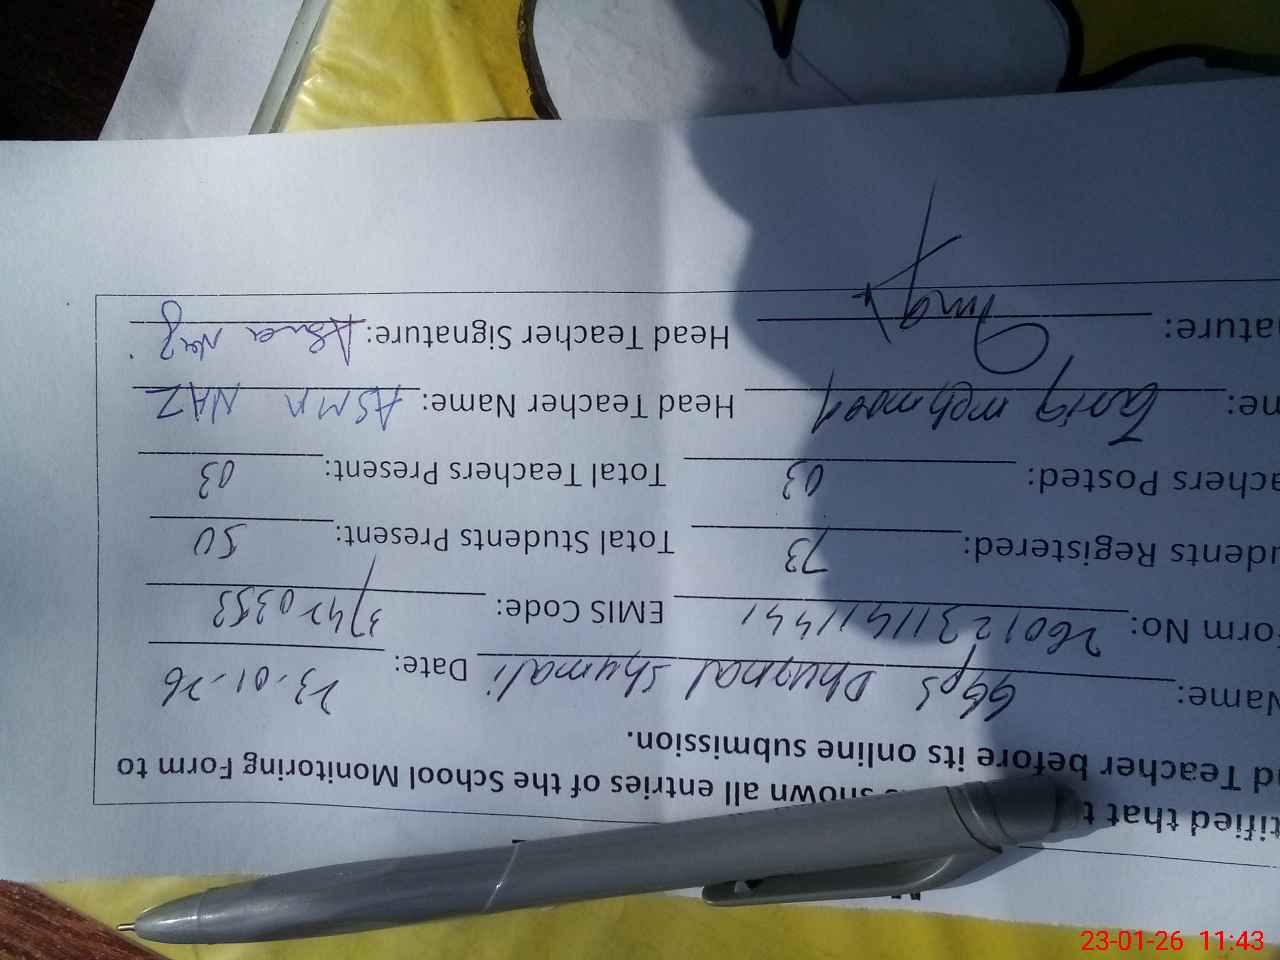 tified that t shown all entries of the School Monitoring Form to
d Teacher before its online submission.
Name: GGPS Dhurnal Shumali Date: 23-01-26
orm No: 26012311411441 EMIS Code: 37470353
udents Registered: 73 Total Students Present: 50
achers Posted: 03 Total Teachers Present: 03
me: Tariq mehmood Head Teacher Name: ASMA NAZ
ature: Head Teacher Signature: Asma Naz
23-01-26 11:43